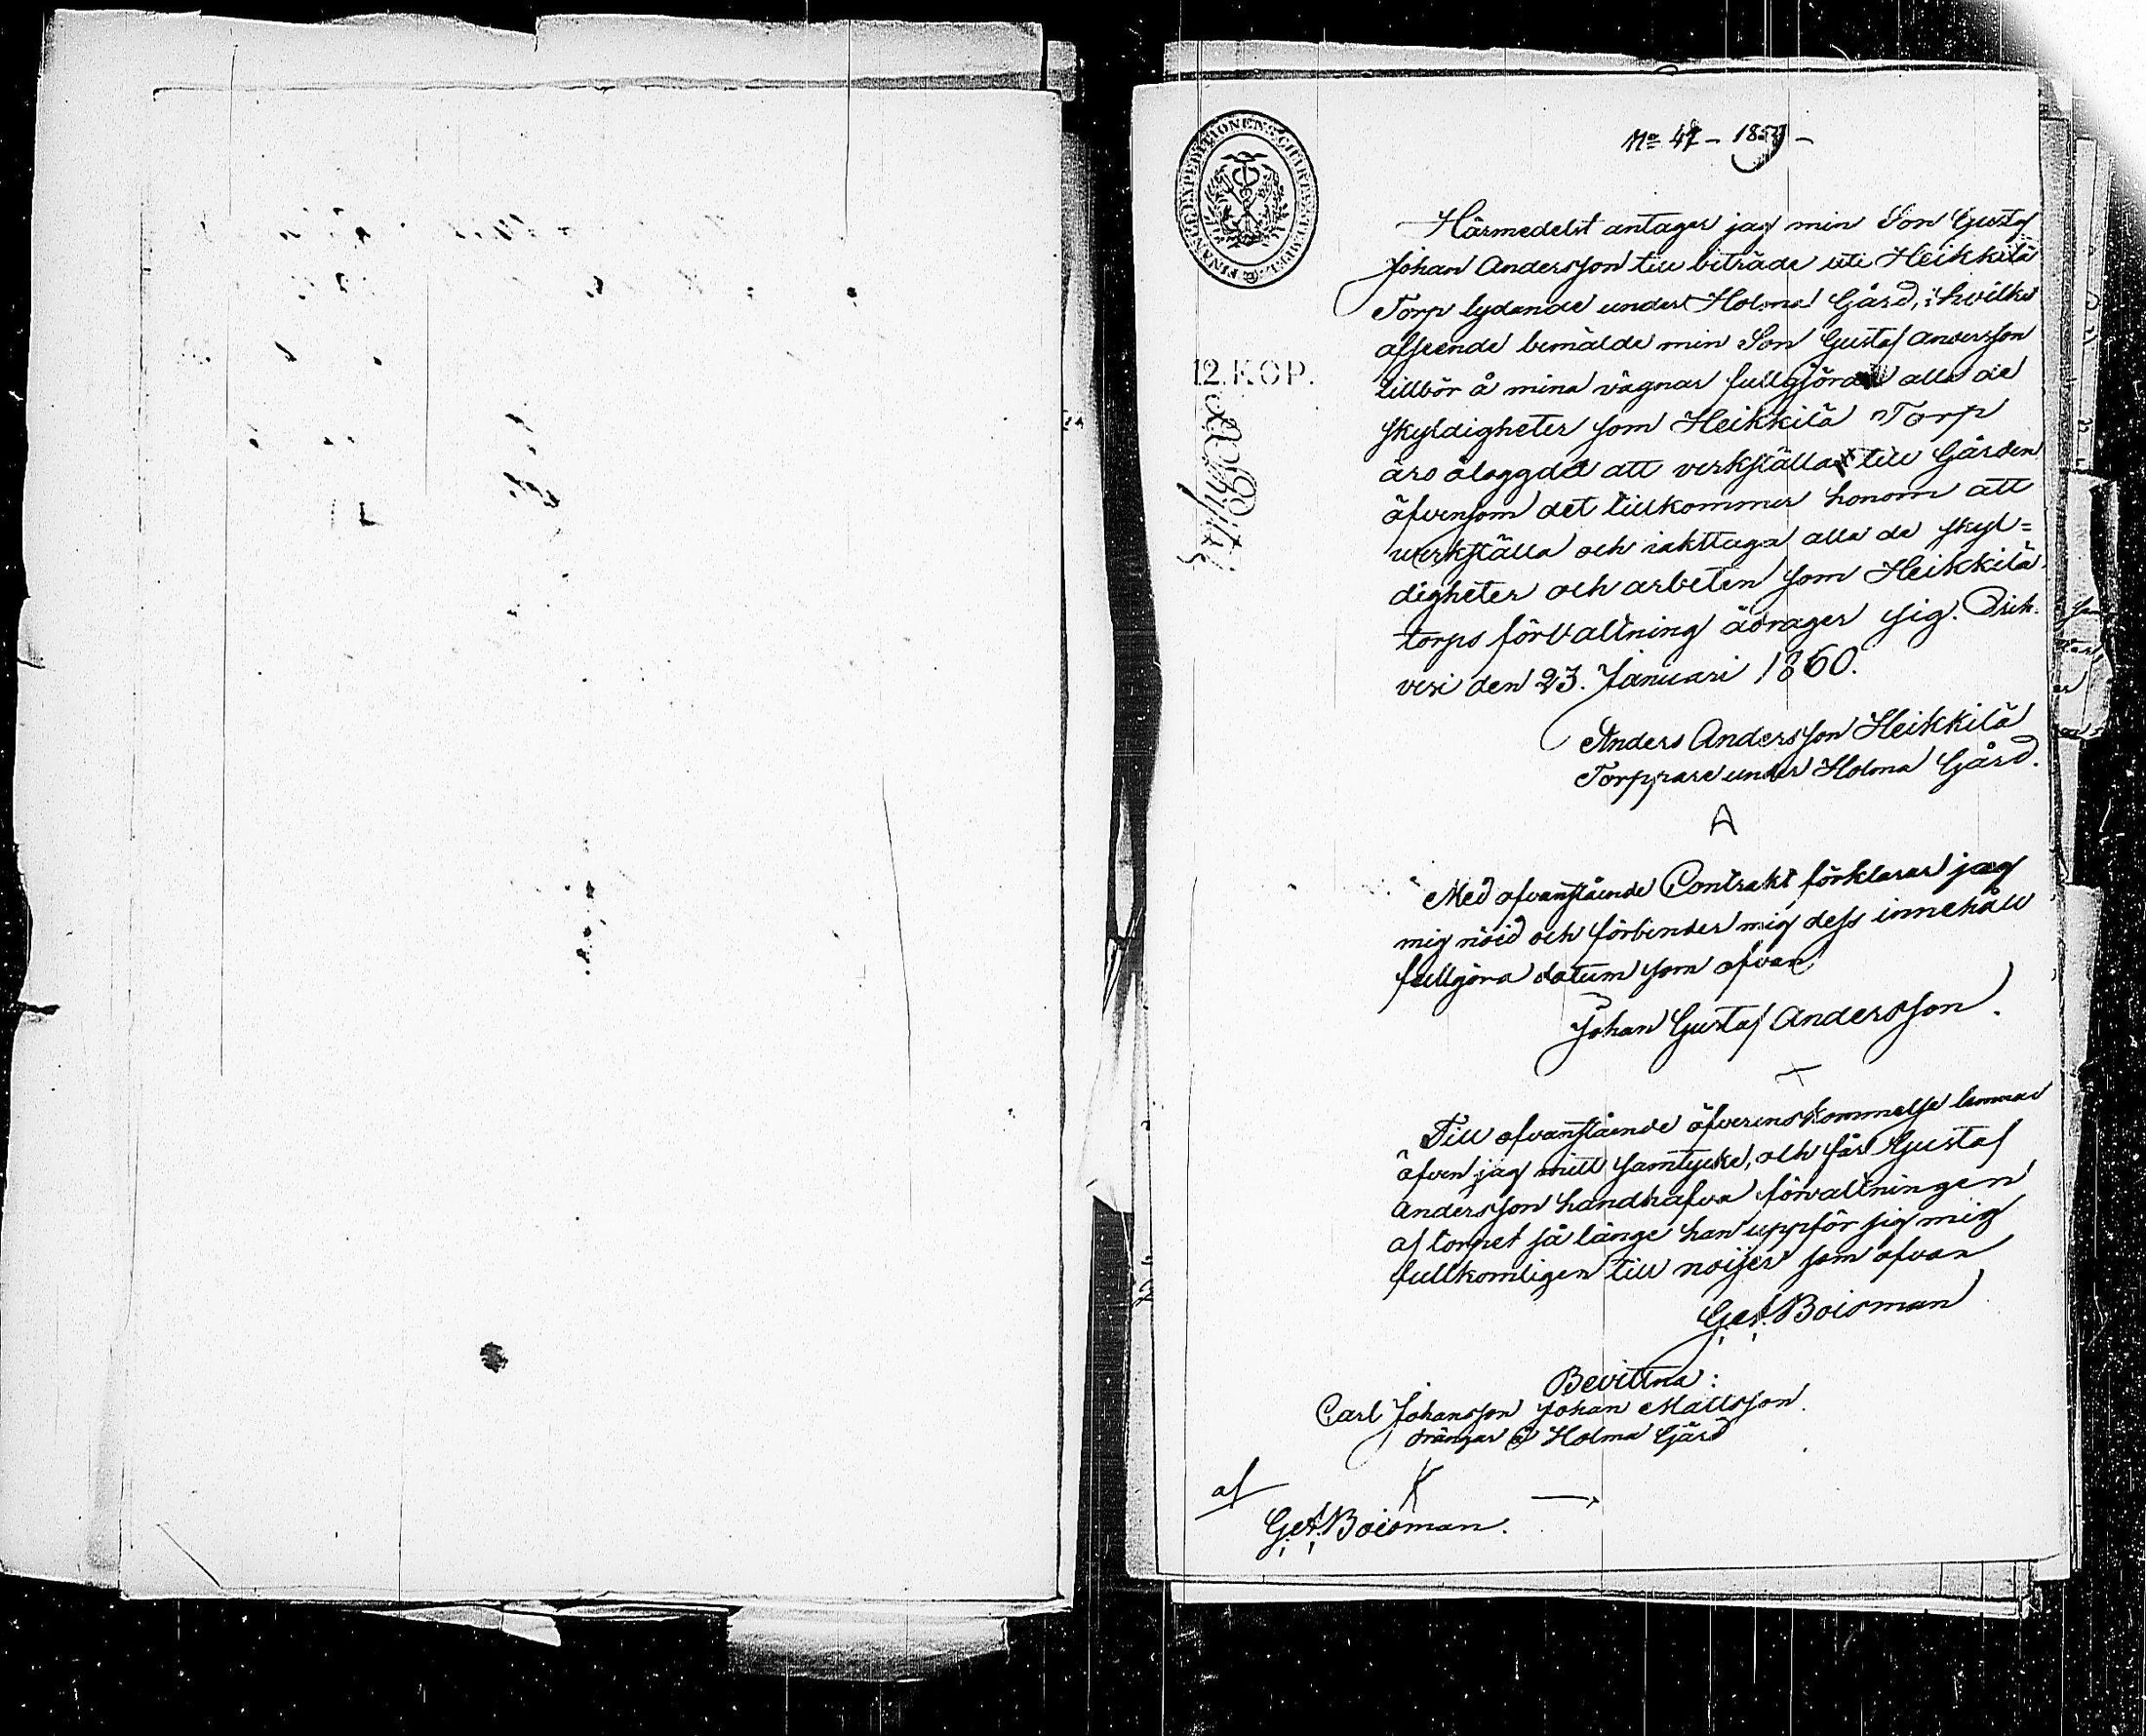 No 47 – 1859 –
Härmedelst antager jag min Son Gustaf
Johan Andersson till biträde uti Heikkilä
Torp lydande under Holma Gård, i hvilka
afseende bemälde min Son Gustaf Andersson
tillbör å mina vägnar fullgjöra alla de
skyldigheter som Heikkilä Torp
äro ålaggda att verkställa till Gården
äfvensom det tillkommer honom att
werkställa och iakttaga alla de skyl=
digheter och arbeten som Heikkilä
torps förvaltning ådrager sig. Disk-
veri den 23. Januari 1860.
12. KOP.
Anders Andersson Heikkilä
Torppare under Holma Gård.
A
Med ofvanstående Contrakt förklarar jag
mig nöid och förbinder mig dess innehåll
fullgöra datum som ofvan
Johan Gustaf Andersson.
Till ofvanstående öfverenskommelse lemnar
äfven jag mitt samtycke, och får Gustaf
Andersson handhafva förvaltningen
af torpet så länge han uppför sig mig
fullkomligen till nöijes som ofvan
G. A. Boisman
Bevittna:
Carl Johansson Johan Mattsson.
drängar å Holma Gård
af
G. A. Boisman.